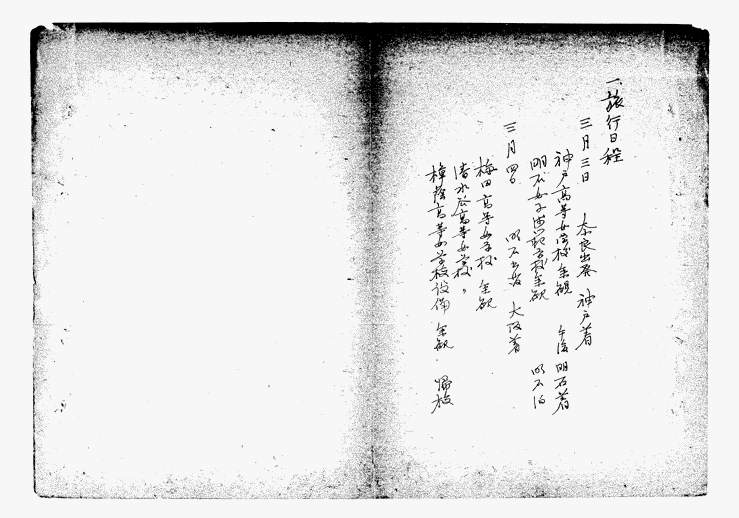 一、旅行日程
三月三日 奈良出発 神戸着
神戸高等女学校参観 午後 明石着
明石女子師範学校参観 明石泊
三月四日 明石出発 大阪着
梅田高等女学校 参観
清水谷高等女学校 〃
樟蔭高等女学校設備 参観、帰校